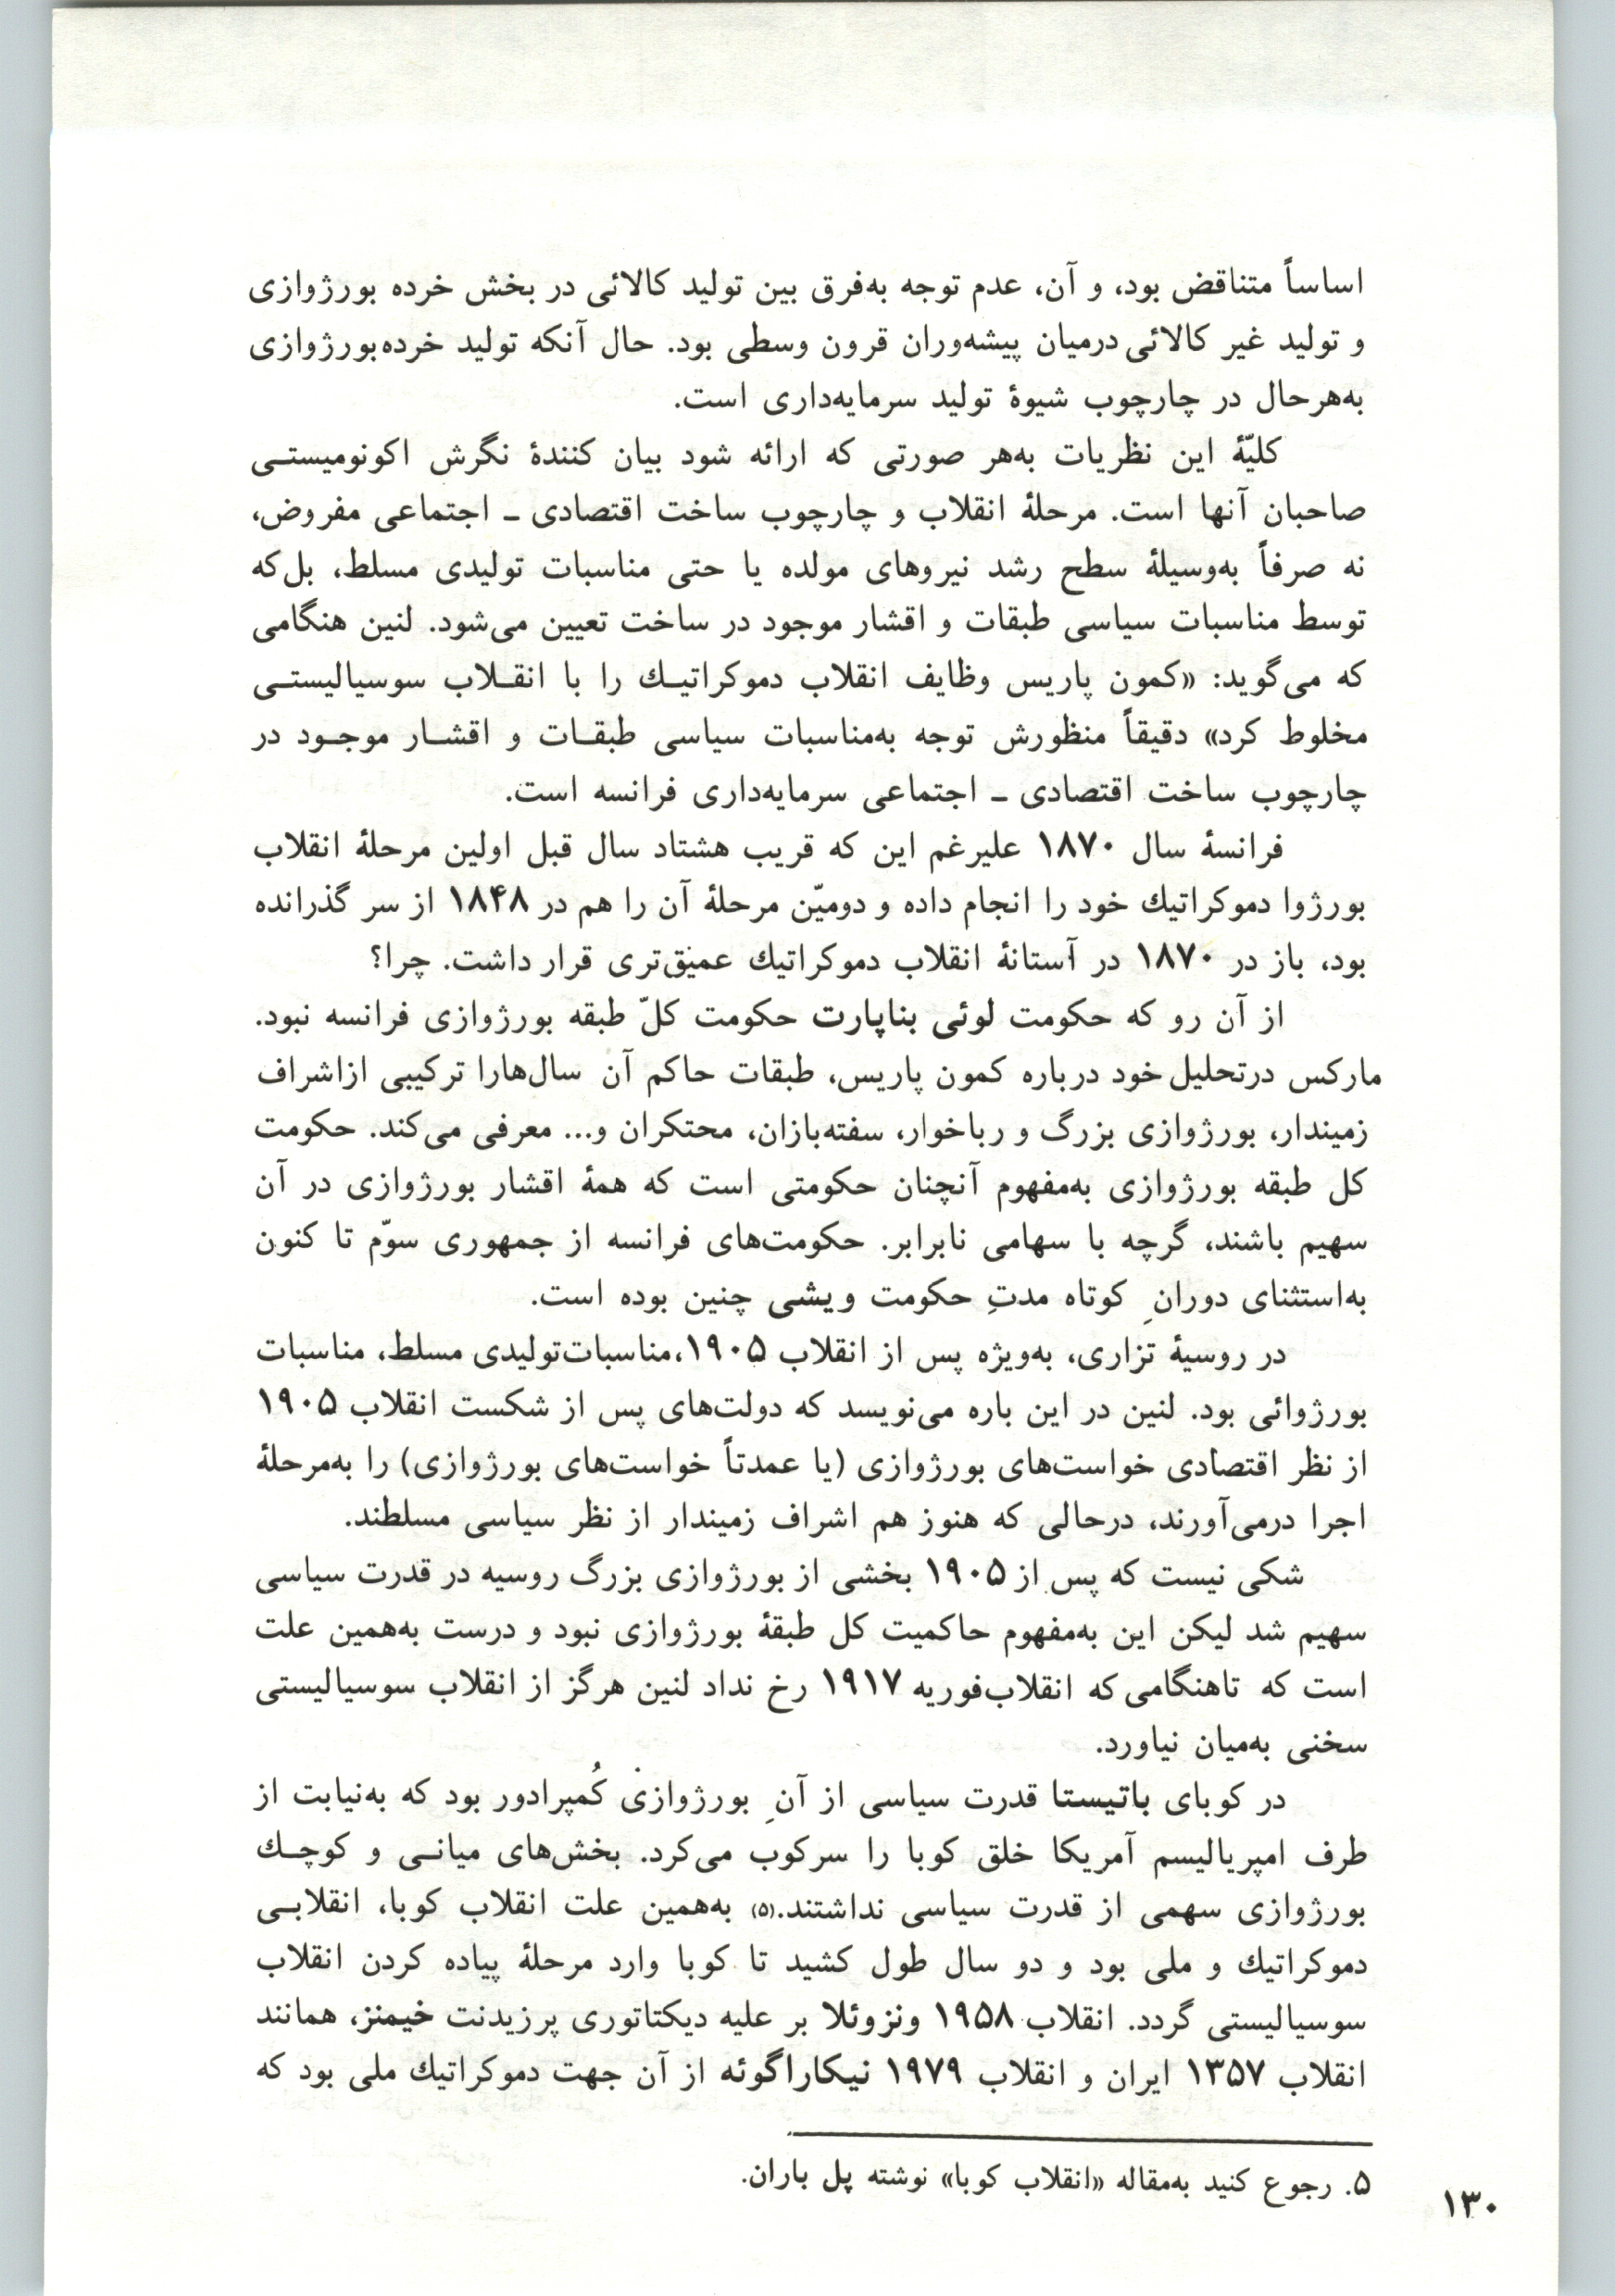 اساساً متناقض بود، و آن، عدم توجه به‌فرق بین تولید کالائی در بخش خرده بورژوازی
و تولید غیر کالائی درمیان پیشه‌وران قرون وسطی بود. حال آنکه تولید خرده‌بورژوازی
به‌هرحال در چارچوب شیوۀ تولید سرمایه‌داری است.
کلیّۀ این نظریات به‌هر صورتی که ارائه شود بیان کنندۀ نگرش اکونومیستـی
صاحبان آنها است. مرحلۀ انقلاب و چارچوب ساخت اقتصادی ـ اجتماعی مفروض،
نه صرفاً به‌وسیلۀ سطح رشد نیروهای مولده یا حتی مناسبات تولیدی مسلط، بل‌که
توسط مناسبات سیاسی طبقات و اقشار موجود در ساخت تعیین می‌شود. لنین هنگامی
که می‌گوید: «کمون پاریس وظایف انقلاب دموکراتیـك را با انقـلاب سوسیالیستـی
مخلوط کرد» دقیقاً منظورش توجه به‌مناسبات سیاسی طبقـات و اقشـار موجـود در
چارچوب ساخت اقتصادی ـ اجتماعی سرمایه‌داری فرانسه است.
فرانسۀ سال ۱۸۷۰ علیرغم این که قریب هشتاد سال قبل اولین مرحلۀ انقلاب
بورژوا دموکراتیك خود را انجام داده و دومیّن مرحلۀ آن را هم در ۱۸۴۸ از سر گذرانده
بود، باز در ۱۸۷۰ در آستانۀ انقلاب دموکراتیك عمیق‌تری قرار داشت. چرا؟
از آن رو که حکومت لوئی بناپارت حکومت کلّ طبقه بورژوازی فرانسه نبود.
مارکس درتحلیل خود درباره کمون پاریس، طبقات حاکم آن سال‌هارا ترکیبی ازاشراف
زمیندار، بورژوازی بزرگ و رباخوار، سفته‌بازان، محتکران و... معرفی می‌کند. حکومت
کل طبقه بورژوازی به‌مفهوم آنچنان حکومتی است که همۀ اقشار بورژوازی در آن
سهیم باشند، گرچه با سهامی نابرابر. حکومت‌های فرانسه از جمهوری سوّم تا کنون
به‌استثنای دورانِ کوتاه مدتِ حکومت ویشی چنین بوده است.
در روسیۀ تزاری، به‌ویژه پس از انقلاب ۱۹۰۵،مناسبات‌تولیدی مسلط، مناسبات
بورژوائی بود. لنین در این باره می‌نویسد که دولت‌های پس از شکست انقلاب ۱۹۰۵
از نظر اقتصادی خواست‌های بورژوازی (یا عمدتاً خواست‌های بورژوازی) را به‌مرحلۀ
اجرا درمی‌آورند، درحالی که هنوز هم اشراف زمیندار از نظر سیاسی مسلطند.
شکی نیست که پس از ۱۹۰۵ بخشی از بورژوازی بزرگ روسیه در قدرت سیاسی
سهیم شد لیکن این به‌مفهوم حاکمیت کل طبقۀ بورژوازی نبود و درست به‌همین علت
است که تاهنگامی که انقلاب‌فوریه ۱۹۱۷ رخ نداد لنین هرگز از انقلاب سوسیالیستی
سخنی به‌میان نیاورد.
در کوبای باتیستا قدرت سیاسی از آنِ بورژوازی کُمپرادور بود که به‌نیابت از
طرف امپریالیسم آمریکا خلق کوبا را سرکوب می‌کرد. بخش‌های میانـی و کوچـك
بورژوازی سهمی از قدرت سیاسی نداشتند.(۵) به‌همین علت انقلاب کوبا، انقلابـی
دموکراتیك و ملی بود و دو سال طول کشید تا کوبا وارد مرحلۀ پیاده کردن انقلاب
سوسیالیستی گردد. انقلاب ۱۹۵۸ ونزوئلا بر علیه دیکتاتوری پرزیدنت خیمنز، همانند
انقلاب ۱۳۵۷ ایران و انقلاب ۱۹۷۹ نیکاراگوئه از آن جهت دموکراتیك ملی بود که
۵. رجوع کنید به‌مقاله «انقلاب کوبا» نوشته پل باران.
۱۳۰